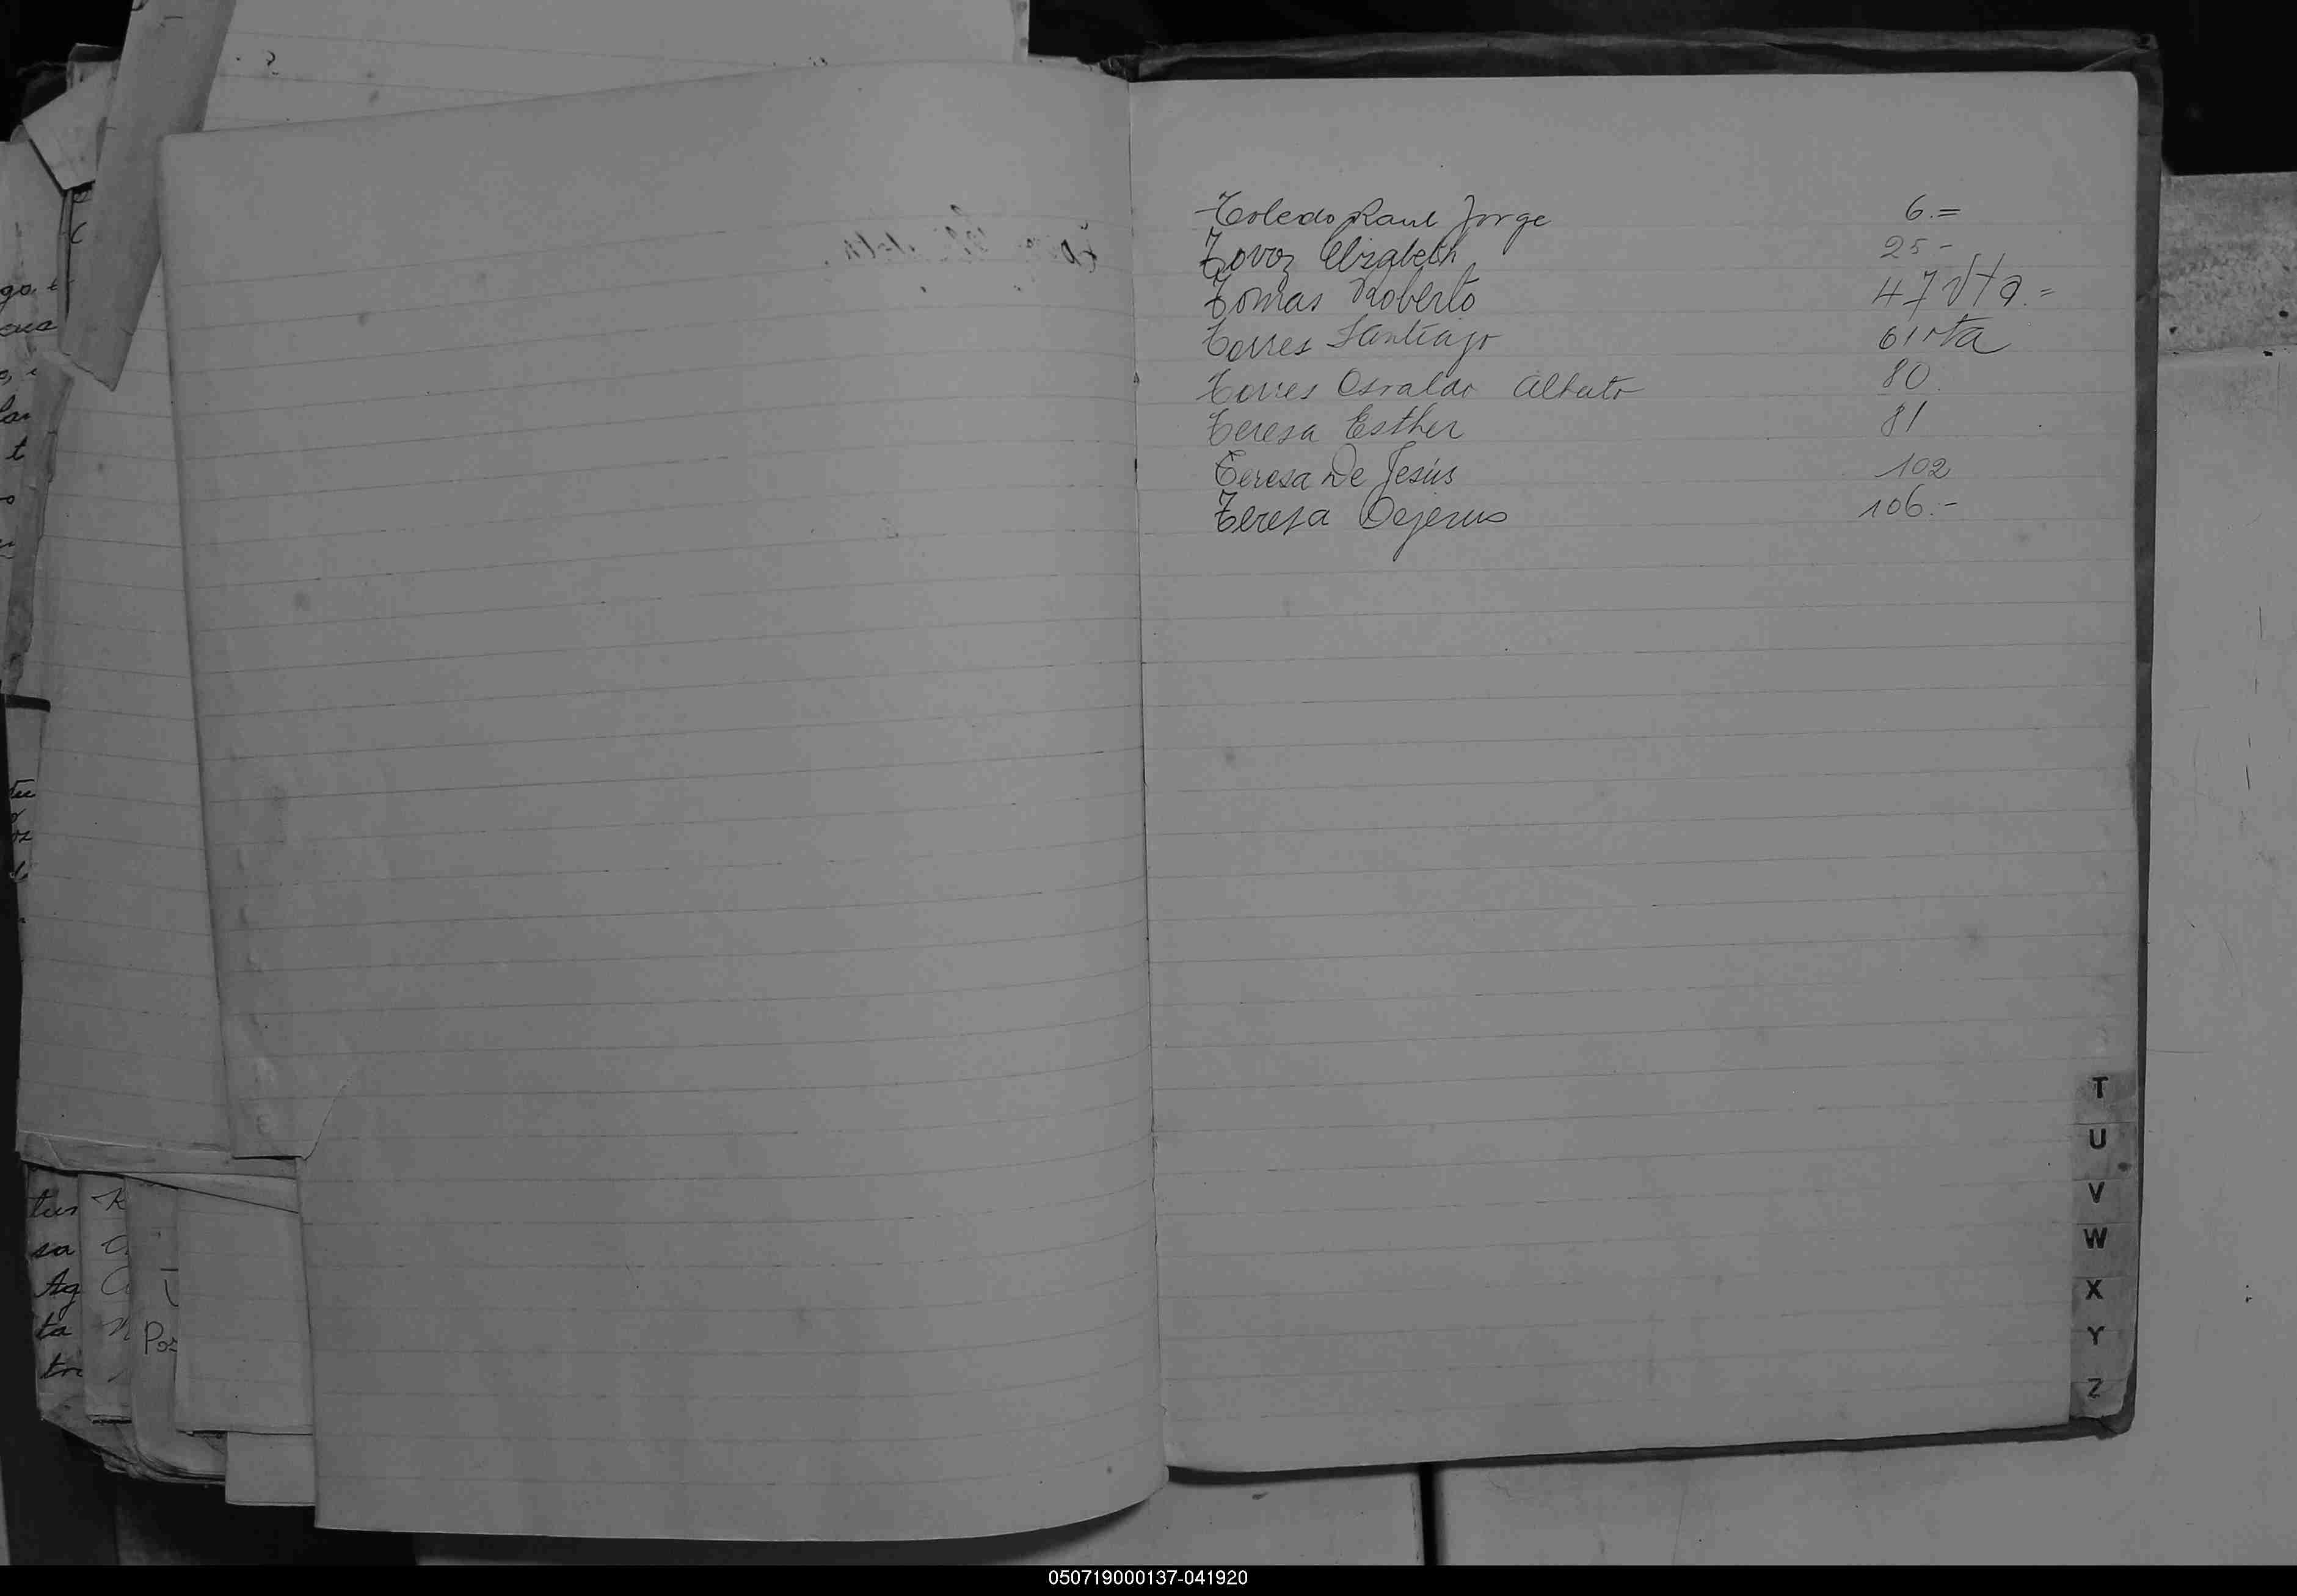 Toledo Raul Jorge 6.=
Tovoz Elizabeth 25-
Tomas Roberto 47 Vta.=
Torres Santiago 61 vta
Torres Osvaldo Alberto 80
Teresa Esther 81
Teresa De Jesús 102
Teresa Dejesus 106.-
T
U
V
W
X
Y
Z
tus
sa
Ag
ta
Poz
050719000137-041920